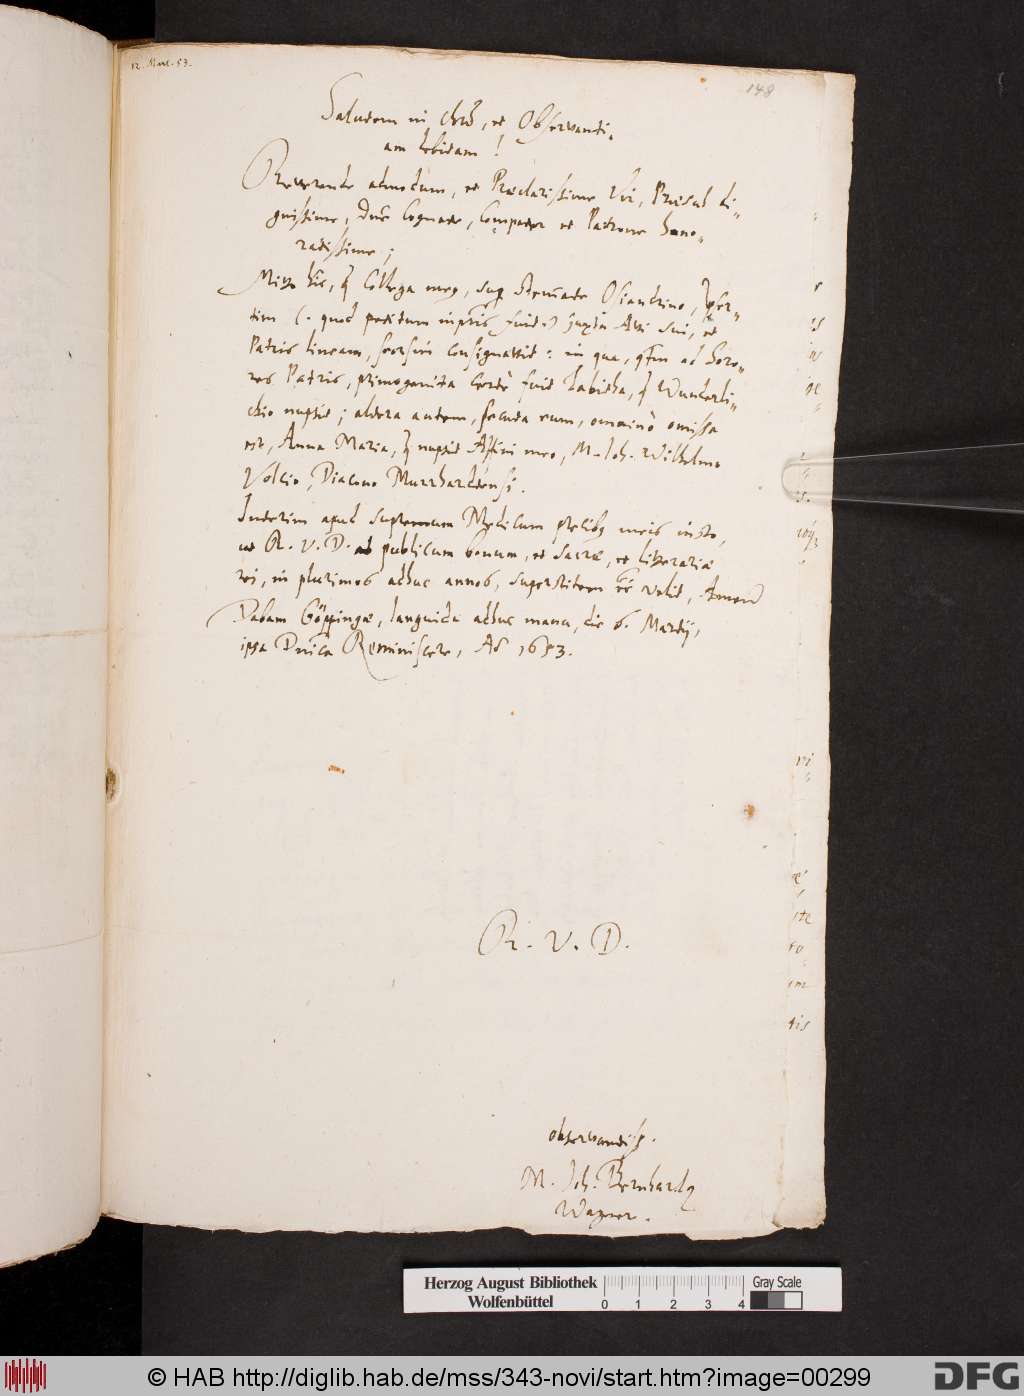 12. Mart. 53.
148
Salutem in Chrõ, et Observanti,
am debitam!
Reverende admodum, et Præclarissime Vir, Præsul di-
gnissime, Dnẽ Cognate, Compater et Patrone hono-
ratissime;
Mitto hîc, Collega meus, Stem̃ate Osiandrino,
tim (: quod petitum inprĩs fuit :) juxta Avi sui, et
Patris lineam, seorsim consignavit: in qua, ad Soro-
res Patris, primogenita certè fuit Tabitha, Wunderli-
chio nupsit; altera autem, secuta eam, omninò omissa
est, Anna Maria, nupsit Affini meo, M. Joh. Wilhelmo
Volcio, Diacono Murrhardtensi.
Interim apud supremum Medicum precibus meis insto,
ut R. V. D. ad publicum bonum, et sacræ, et literariæ
rei, in plurimos adhuc annos, superstitem velit, Amen!
Dabam Göppingæ, languida adhuc manu, die 6. Martij,
ipsa Dnĩca Reminiscere, Aõ 1653.
R. V. D.
observantiss.
M. Joh. Bernhardus
Wagner.
Herzog August Bibliothek
Wolfenbüttel
0 1 2 3 4
Gray Scale
© HAB http://diglib.hab.de/mss/343-novi/start.htm?image=00299
DFG